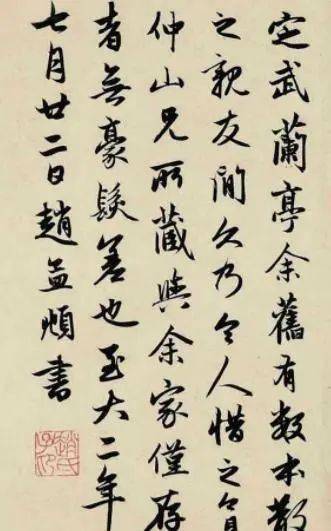 定武蘭亭余舊有數本散
之親友間久乃令人惜之
仲山兄所藏與余家僅存
者無豪髮差也至大二年
七月廿二日趙孟頫書
趙氏子昂